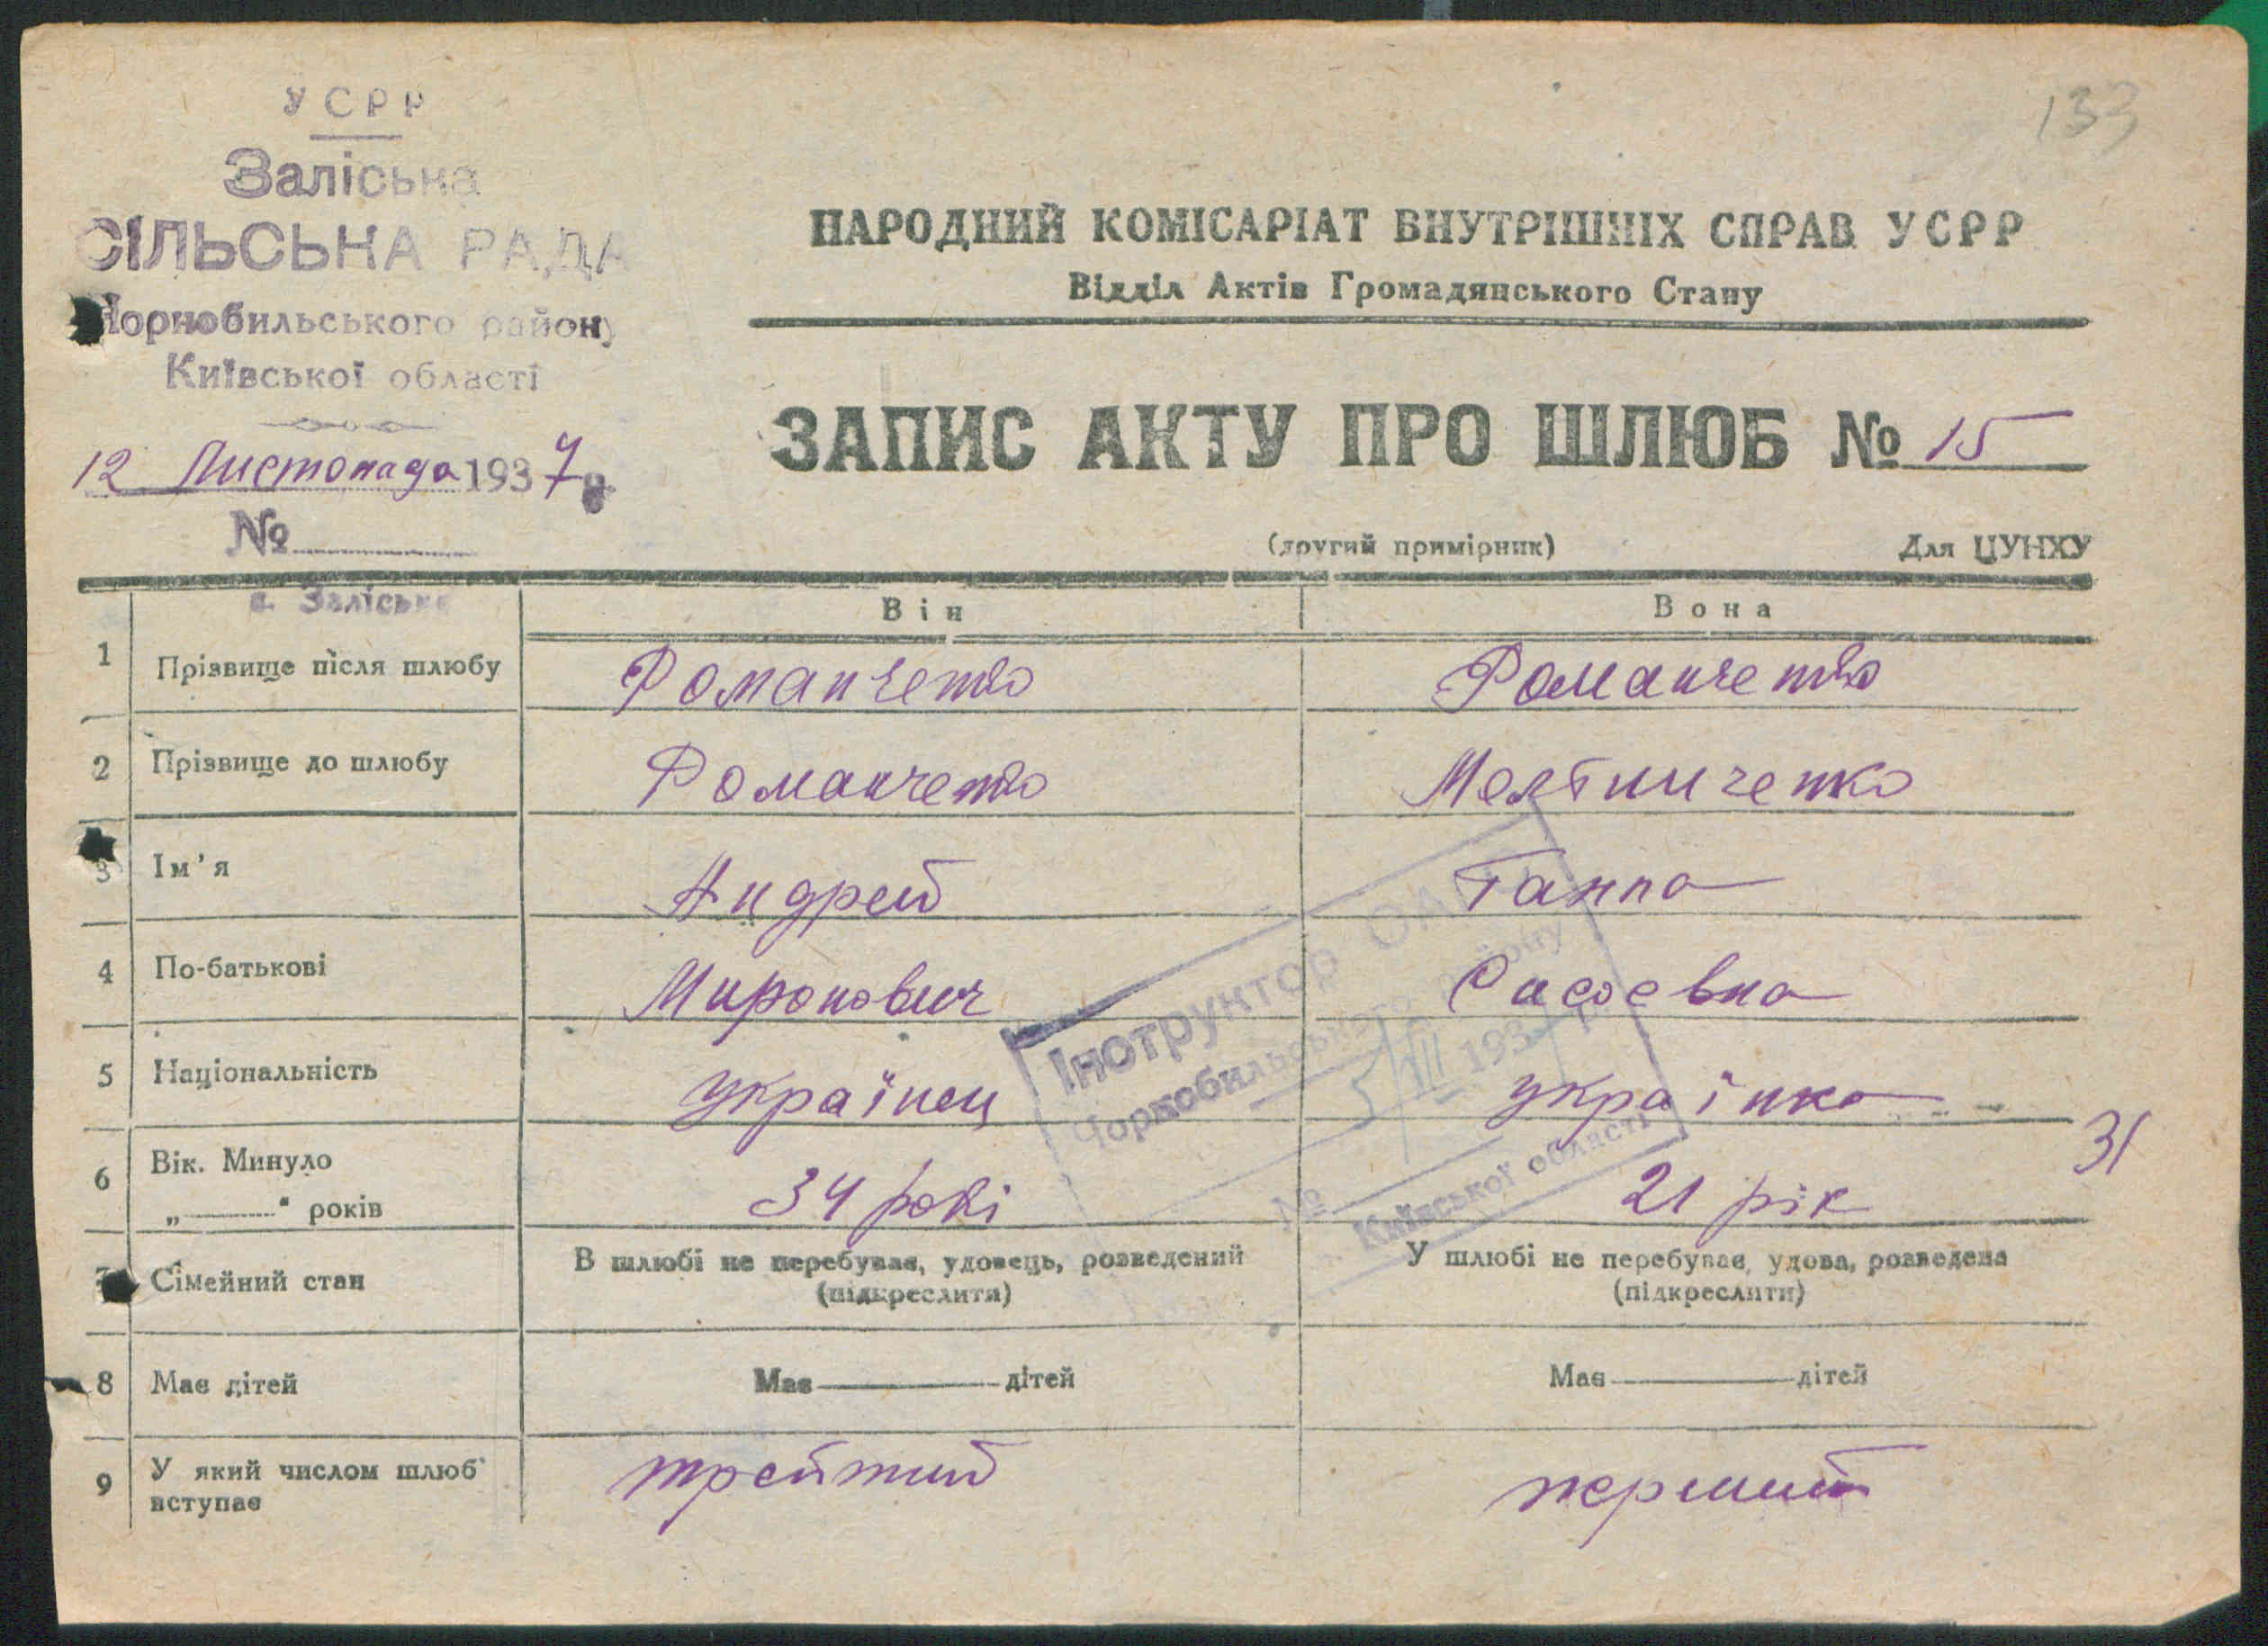 133
УСРР
Заліська
СІЛЬСЬКА РАДА
Чорнобильського району
Київської області
12 Листопада 1937 р.
№
с. Залісьє
НАРОДНИЙ КОМІСАРІАТ ВНУТРІШНІХ СПРАВ УСРР
Відділ Актів Громадянського Стану
ЗАПИС АКТУ ПРО ШЛЮБ № 15
(другий примірник) Для ЦУНХУ
Він Вона
1 Прізвище після шлюбу Романченко Романченко
2 Прізвище до шлюбу Романченко Мельниченко
3 Ім'я Андрей Ганна
4 По-батькові Миронович Сисоєвна
5 Національність українец українка
6 Вік. Минуло
„ " років 34 рокі 21 рік
31
7 Сімейний стан В шлюбі не перебуває, удовець, розведений У шлюбі не перебуває, удова, розведена
(підкреслити) (підкреслити)
8 Має дітей Має дітей Має дітей
9 У який числом шлюб
вступає трейтий перший
Інструктор
Чорнобильського району
5/III 193 р
№
Київської області